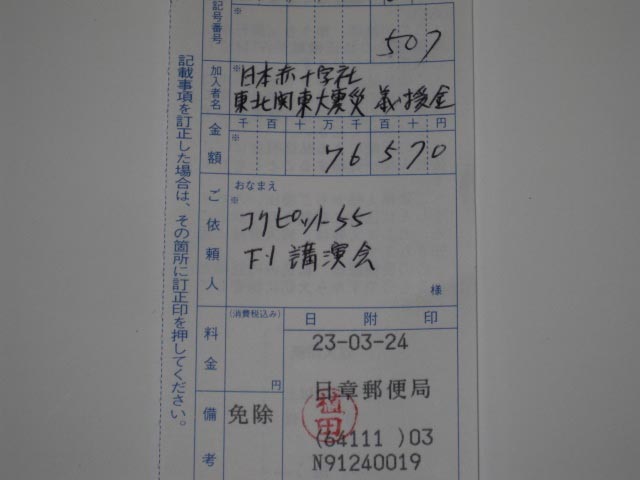 記号番号
※
507
加入者名
※
日本赤十字社
東北関東大震災 義援金
金額
千百十万千百十円
※
76570
ご依頼人
おなまえ
※
コクピット55
F1 講演会
様
料金
(消費税込み)
円
日附印
23-03-24
日章郵便局
(64111 )03
N91240019
備考
免除
記載事項を訂正した場合は、その箇所に訂正印を押してください。